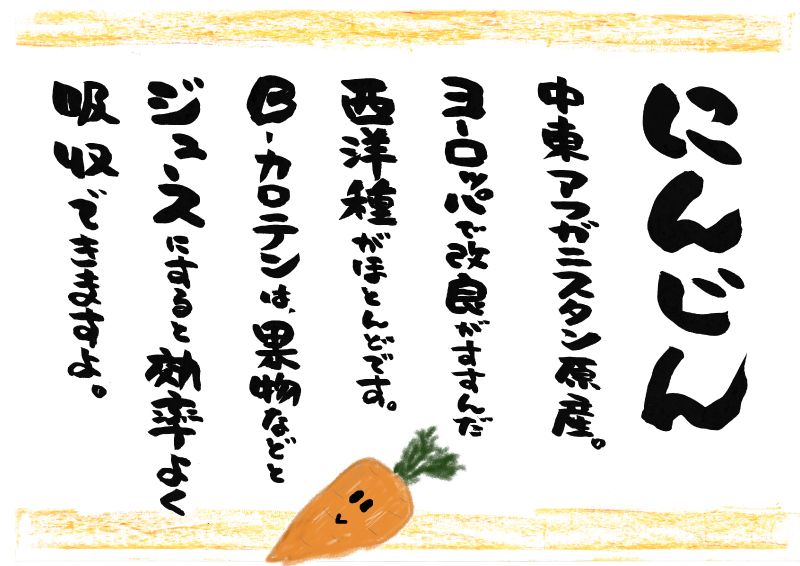 にんじん
中東アフガニスタン原産。
ヨーロッパで改良がすすんだ
西洋種がほとんどです。
B-カロテンは、果物などと
ジュースにすると効率よく
吸収できますよ。